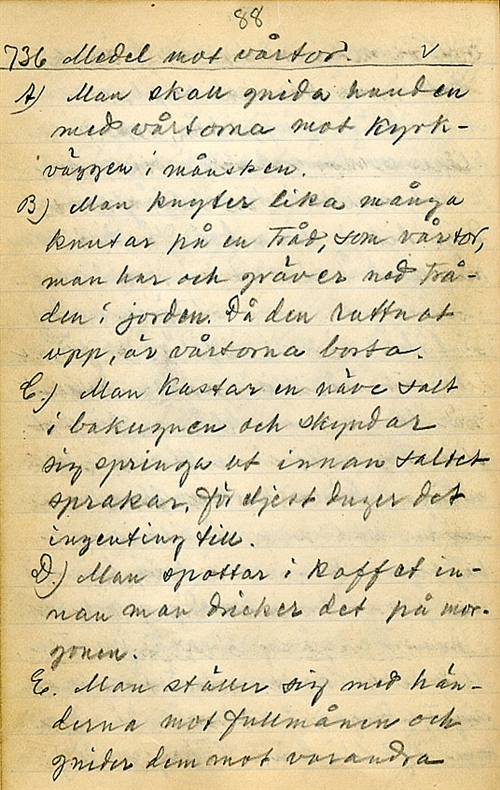 88
736 Medel mot vårtor. V
A) Man skall gnida handen
med vårtorna mot kyrk-
väggen i månsken.
B) Man knyter lika många
knutar på en tråd, som vårtor,
man har och gräver ned trå-
den i jorden. Då den ruttnat
upp, är vårtorna borta.
C.) Man kastar en näve salt
i bakugnen och skyndar
sig springa ut innan saltet
sprakar, för eljest duger det
ingenting till.
D.) Man spottar i kaffet in-
nan man dricker det på mor-
gonen.
E. Man ställer sig med hän-
derna mot fullmånen och
gnider dem mot varandra